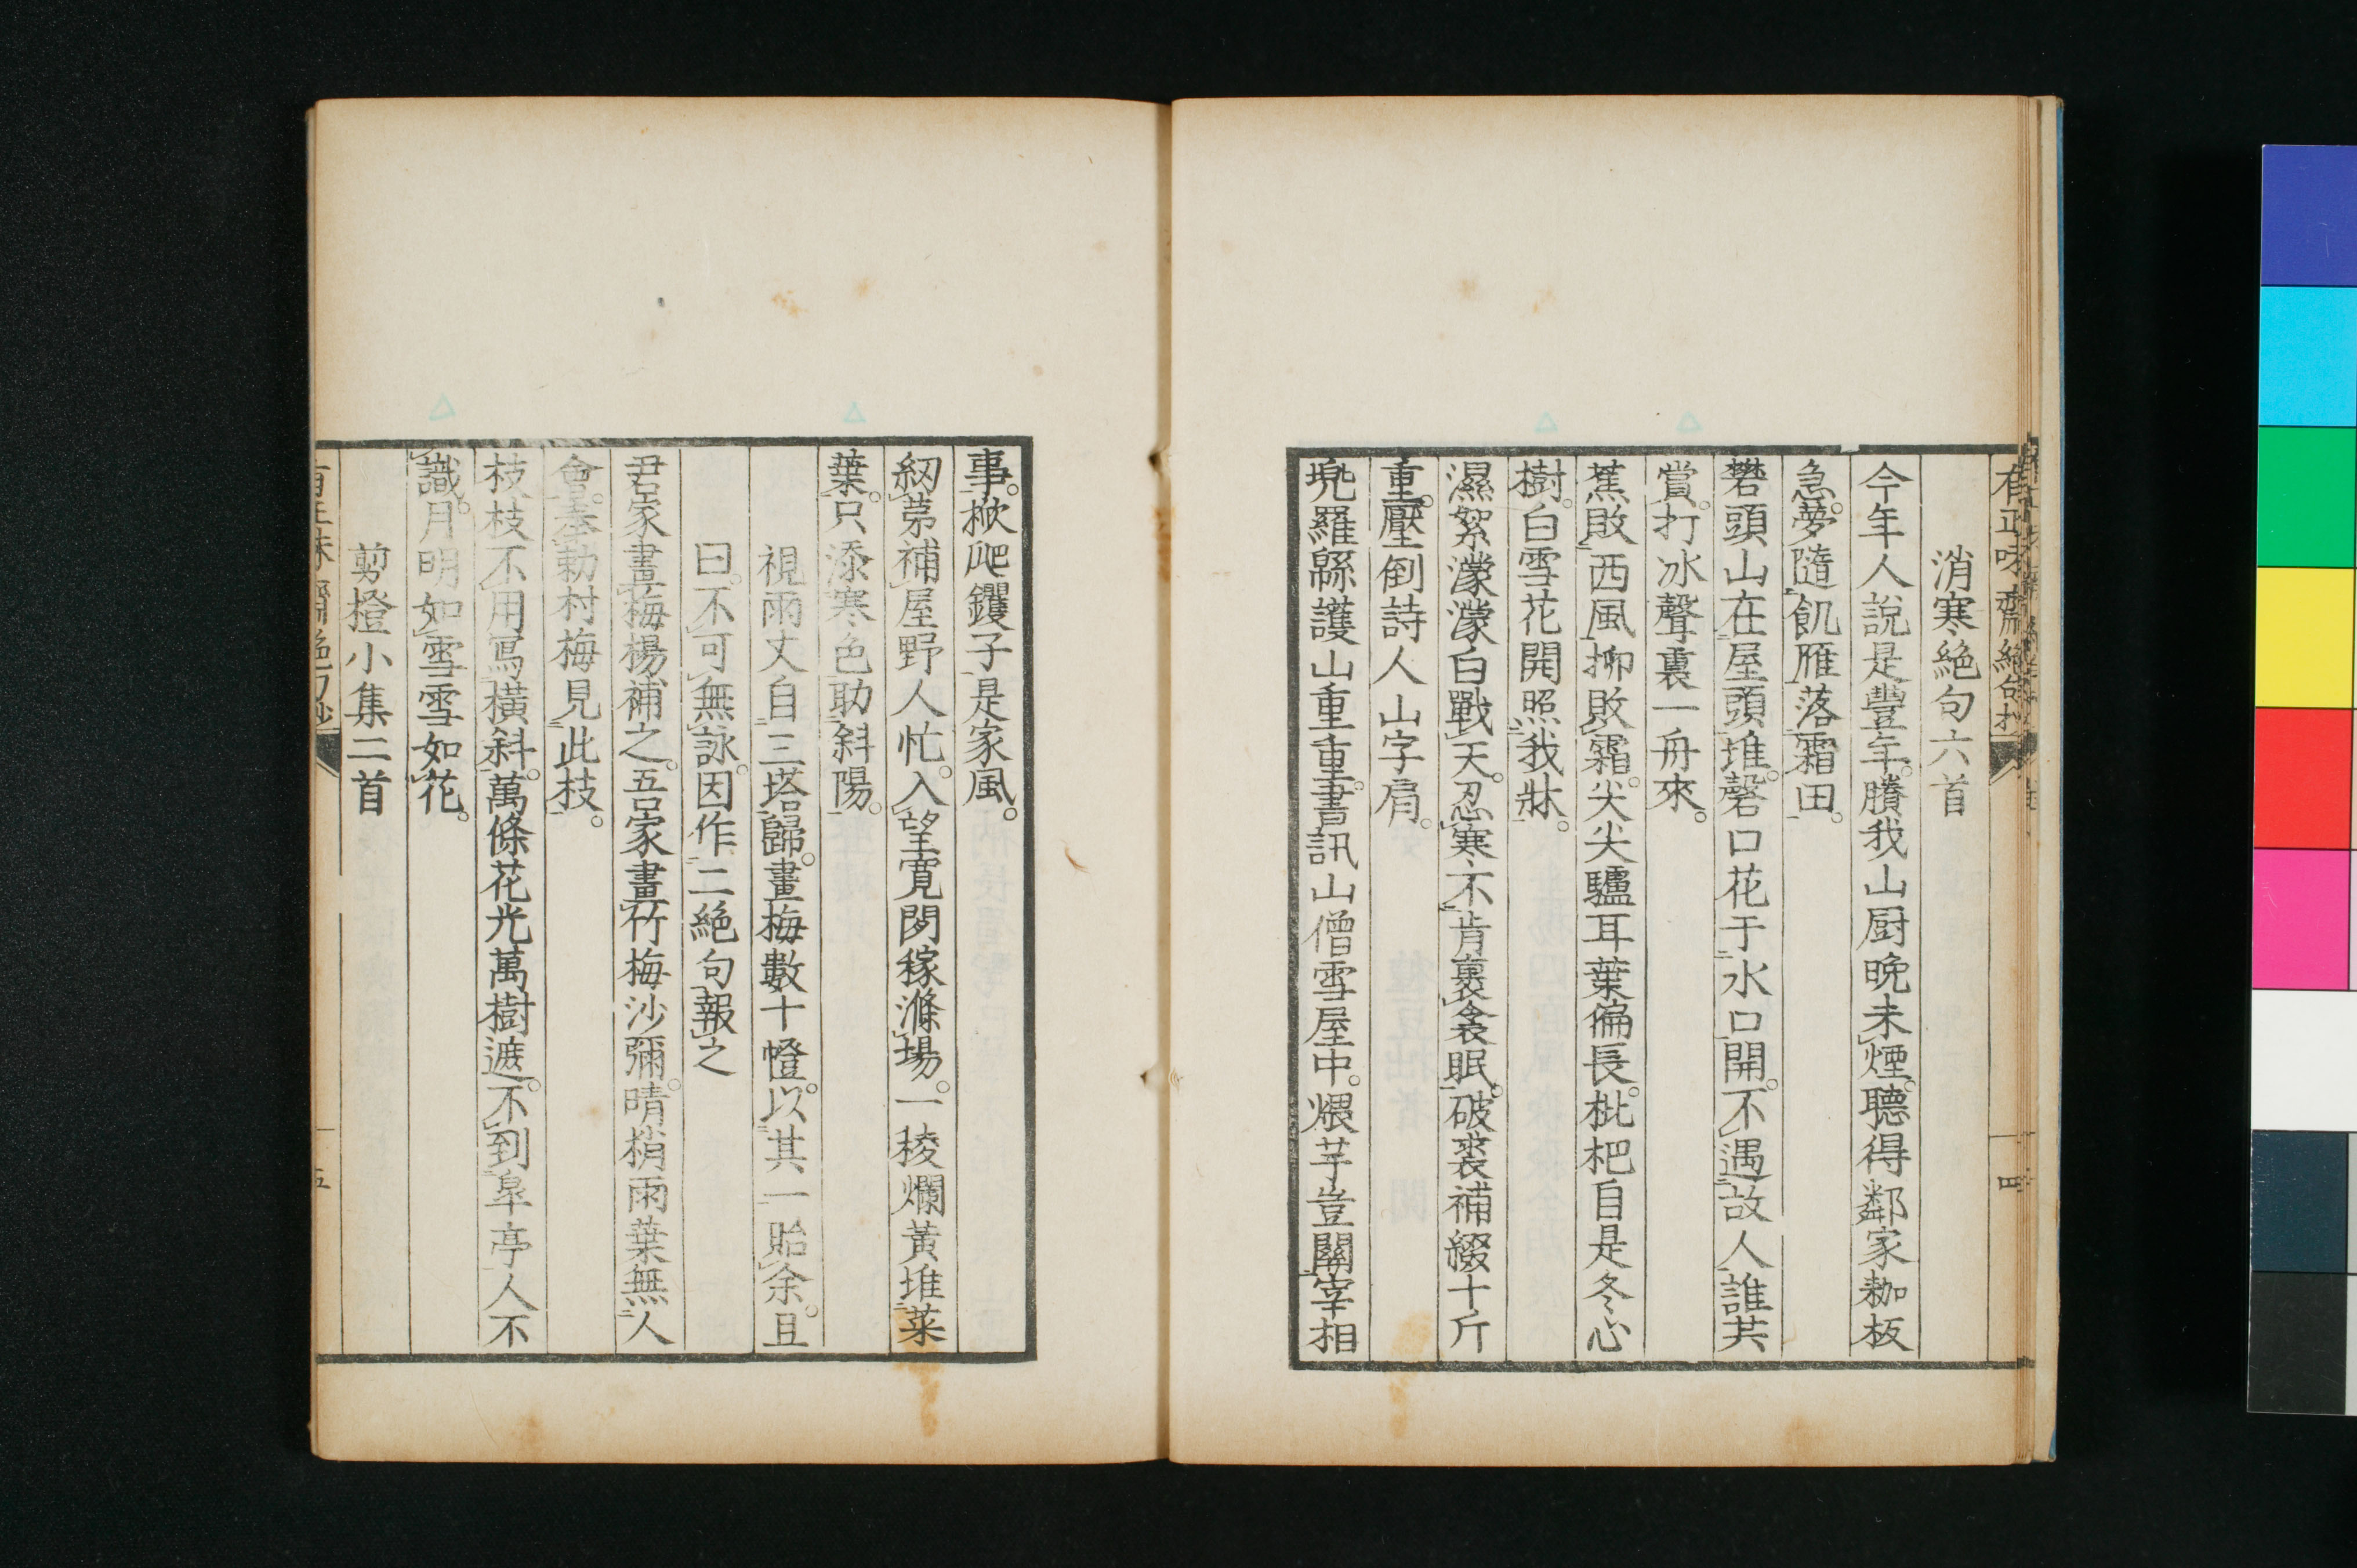 有正味齋絶句抄
四
消寒絶句六首
今年人說是豐年。賸我山厨晚未煙。聽得鄰家耞板
急。夢隨飢雁落霜田。
礬頭山在屋頭堆。磬口花于水口開。不遇故人誰共
賞。打冰聲裏一舟來。
蕉敗西風柳敗霜。尖尖驢耳葉偏長。枇杷自是冬心
樹。白雪花開照我牀。
濕絮濛濛白戰天。忍寒不肯裹衾眠。破裘補綴十斤
重。壓倒詩人山字肩。
兜羅緜護山重重。書訊山僧雪屋中。煨芋豈關宰相
事。揿爬钁子是家風。
紉茅補屋野人忙。入望寬閑稼滌場。一稜爛黃堆菜
葉。只添寒色助斜陽。
視雨丈自三塔歸。畫梅數十幢。以其一貽余。且
曰。不可無詠。因作二絶句報之
君家畫梅楊補之。吾家畫竹梅沙彌。晴梢雨葉無人
會。奉勅村梅見此枝。
枝枝不用寫橫斜。萬條花光萬樹遮。不到皐亭人不
識。月明如雪雪如花。
剪橙小集二首
五